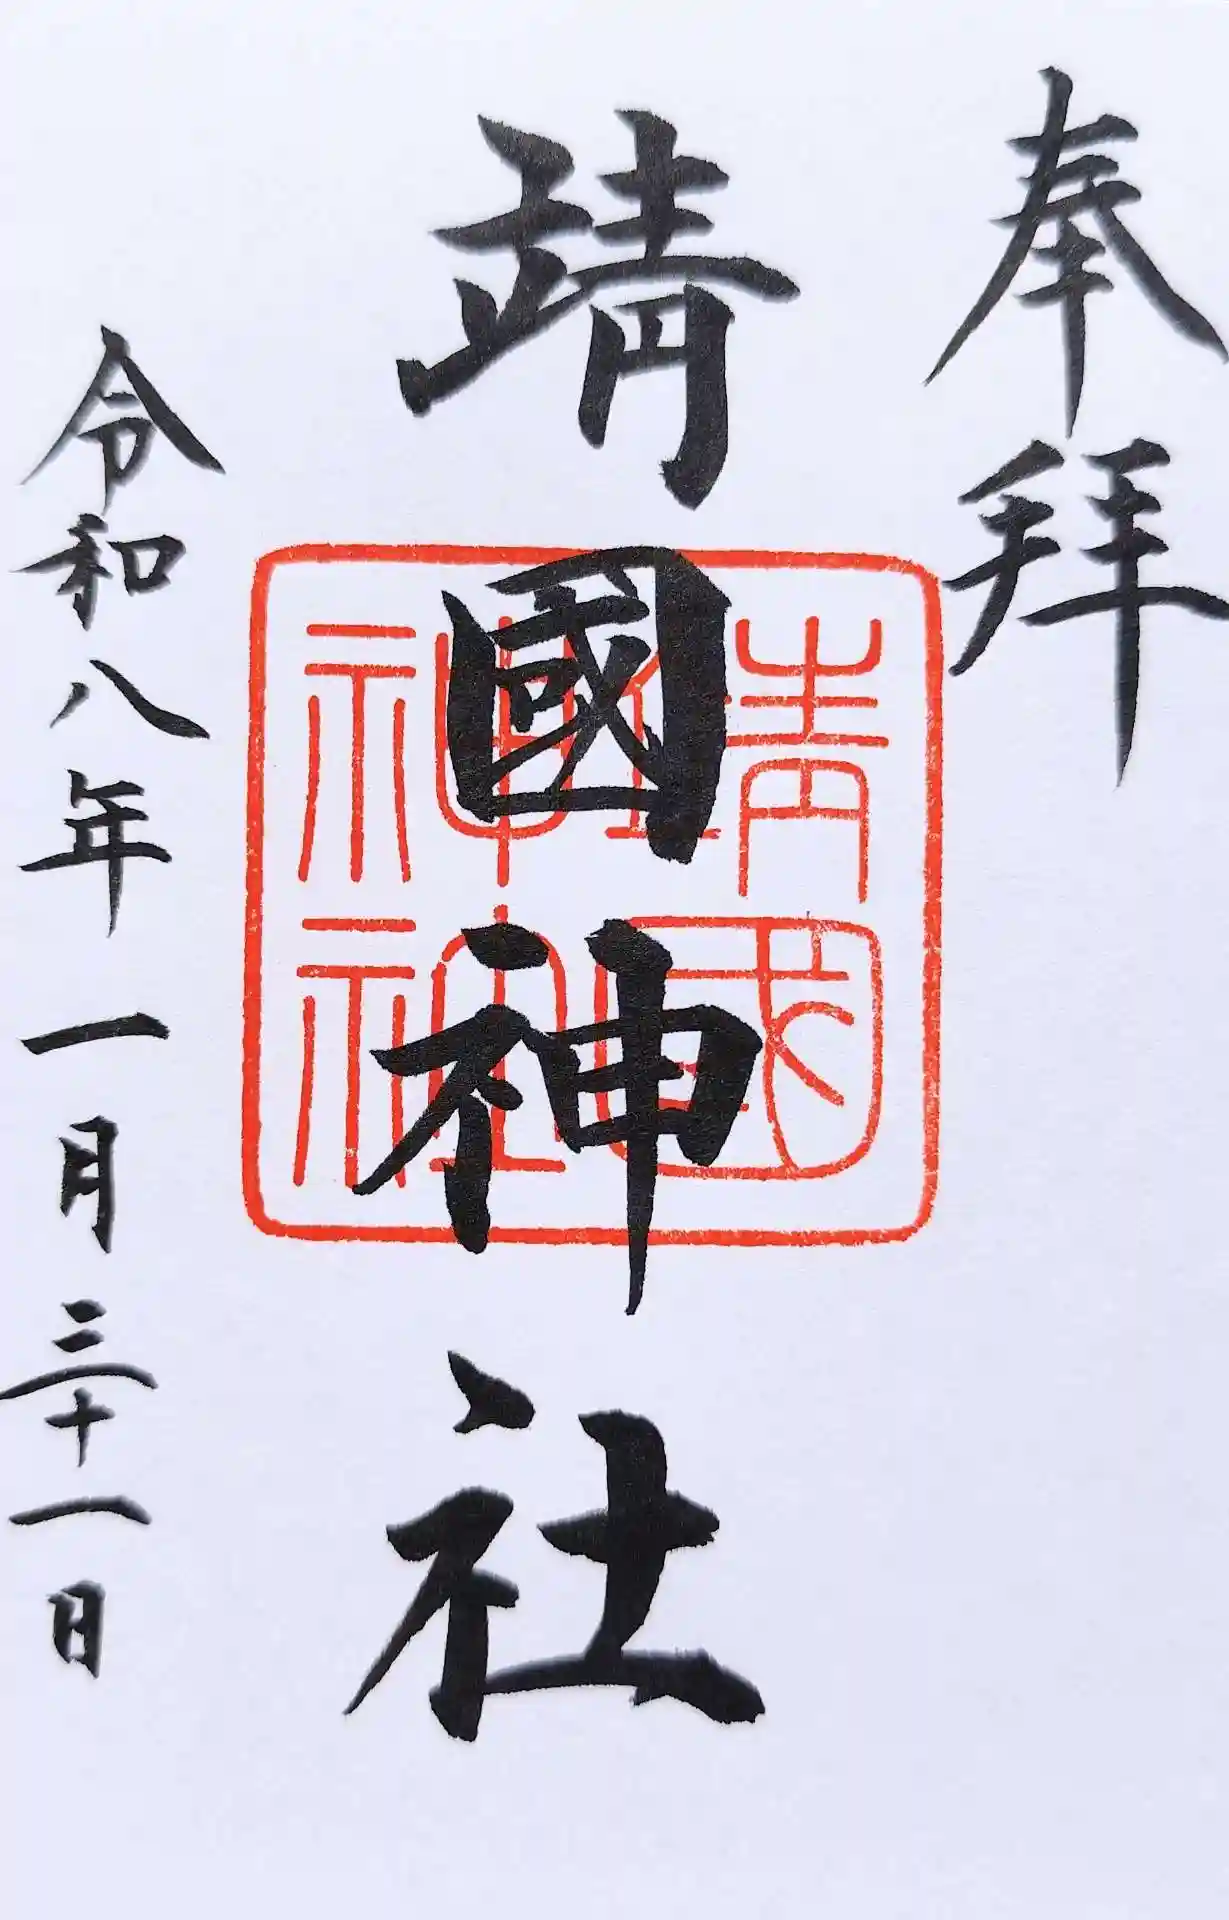 奉拝
靖國神社
靖国神社
令和八年一月三十一日